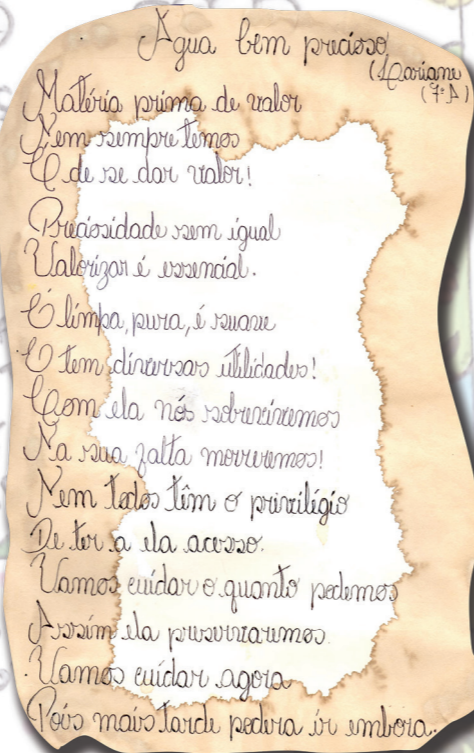 Água bem precioso
(Mariane
(7ª A)
Matéria prima de valor
Nem sempre temos
É de se dar valor!
Preciosidade sem igual
Valorizar é essencial.
É limpa, pura, é suave
E tem diversas utilidades!
Com ela nós sobrevivemos
Na sua falta morreremos!
Nem todos têm o privilégio
De ter a ela acesso.
Vamos cuidar o quanto podemos
Assim ela preservaremos.
Vamos cuidar agora
Pois mais tarde podera ir embora.